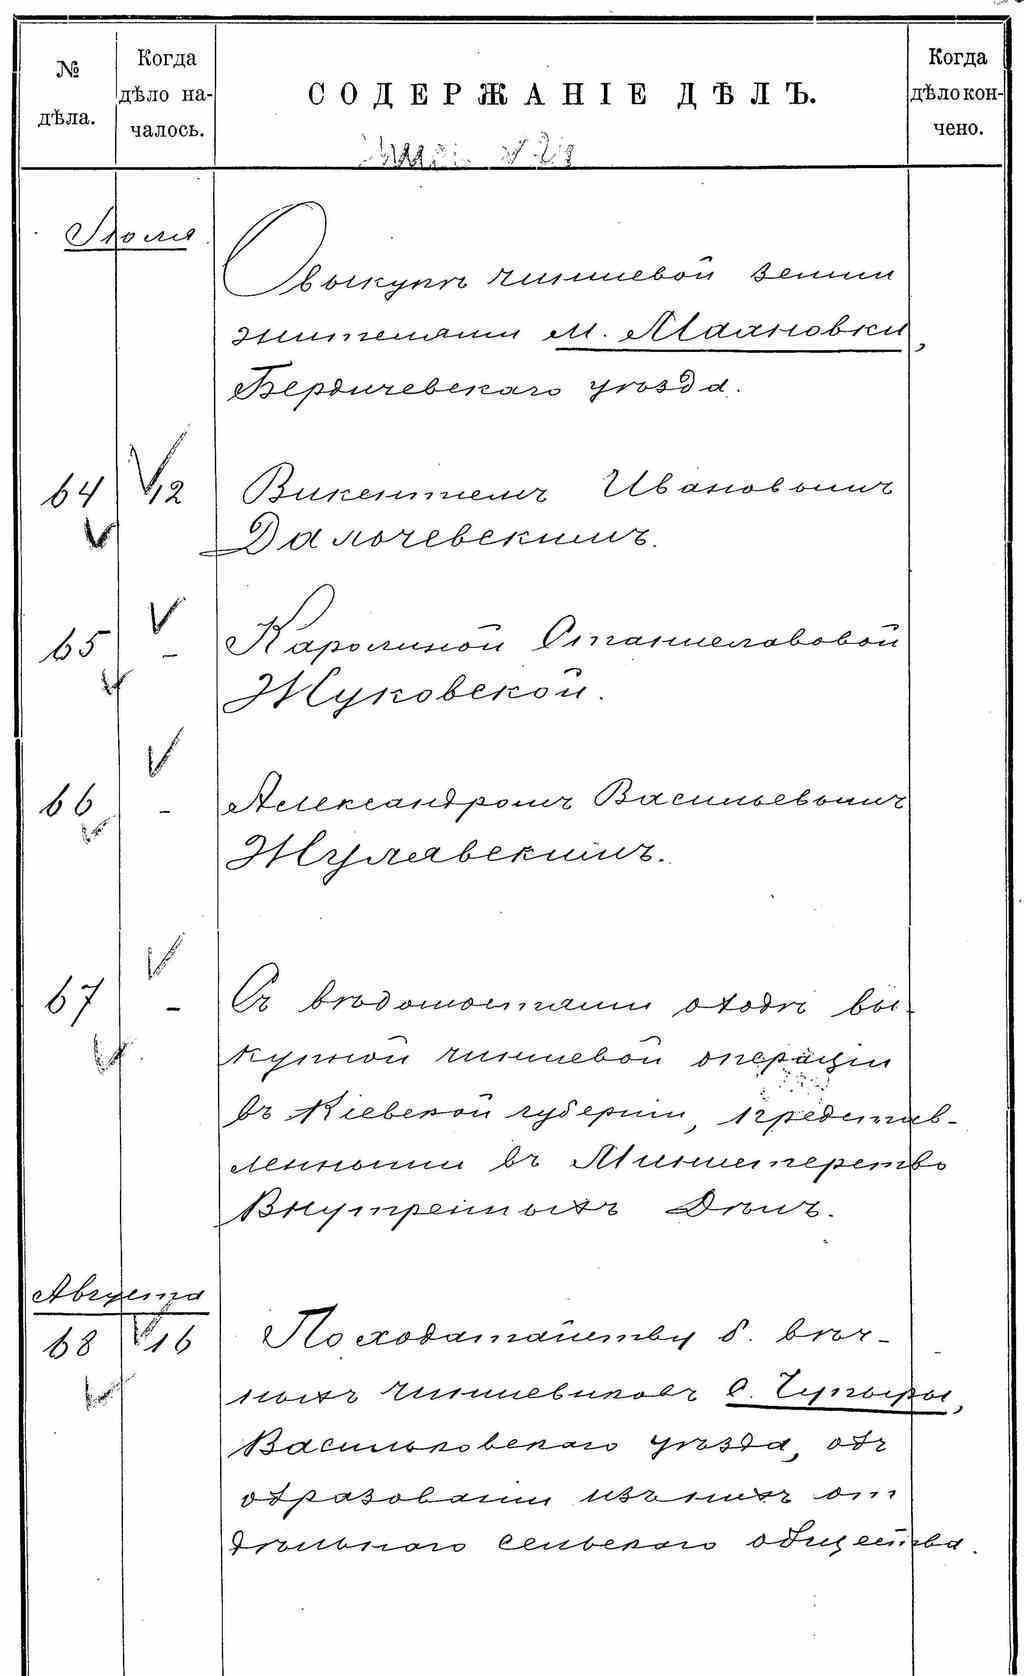 № дѣла.
Когда дѣло на-
чалось.
СОДЕРЖАНІЕ ДѢЛЪ.
Когда дѣло кон-
чено.
Іюля
О выкупѣ чиншевой земли
жителями м. Махновки,
Бердичевскаго уѣзда.
64 12 Викентіемъ Ивановымъ
65 - Каролиной Станиславовой
Жуковской.
66 - Александромъ Васильевымъ
Жулявскимъ.
67 - Съ вѣдомостями о ходѣ вы-
купной чиншевой операціи
въ Кіевской губерніи, представ-
ленными въ Министерство
Внутреннихъ Дѣлъ.
Августа
68 16 По ходатайству б. вѣч-
ныхъ чиншевиковъ с. Чупыры,
Васильковскаго уѣзда, объ
образованіи изъ нихъ от
дѣльнаго сельскаго общества.